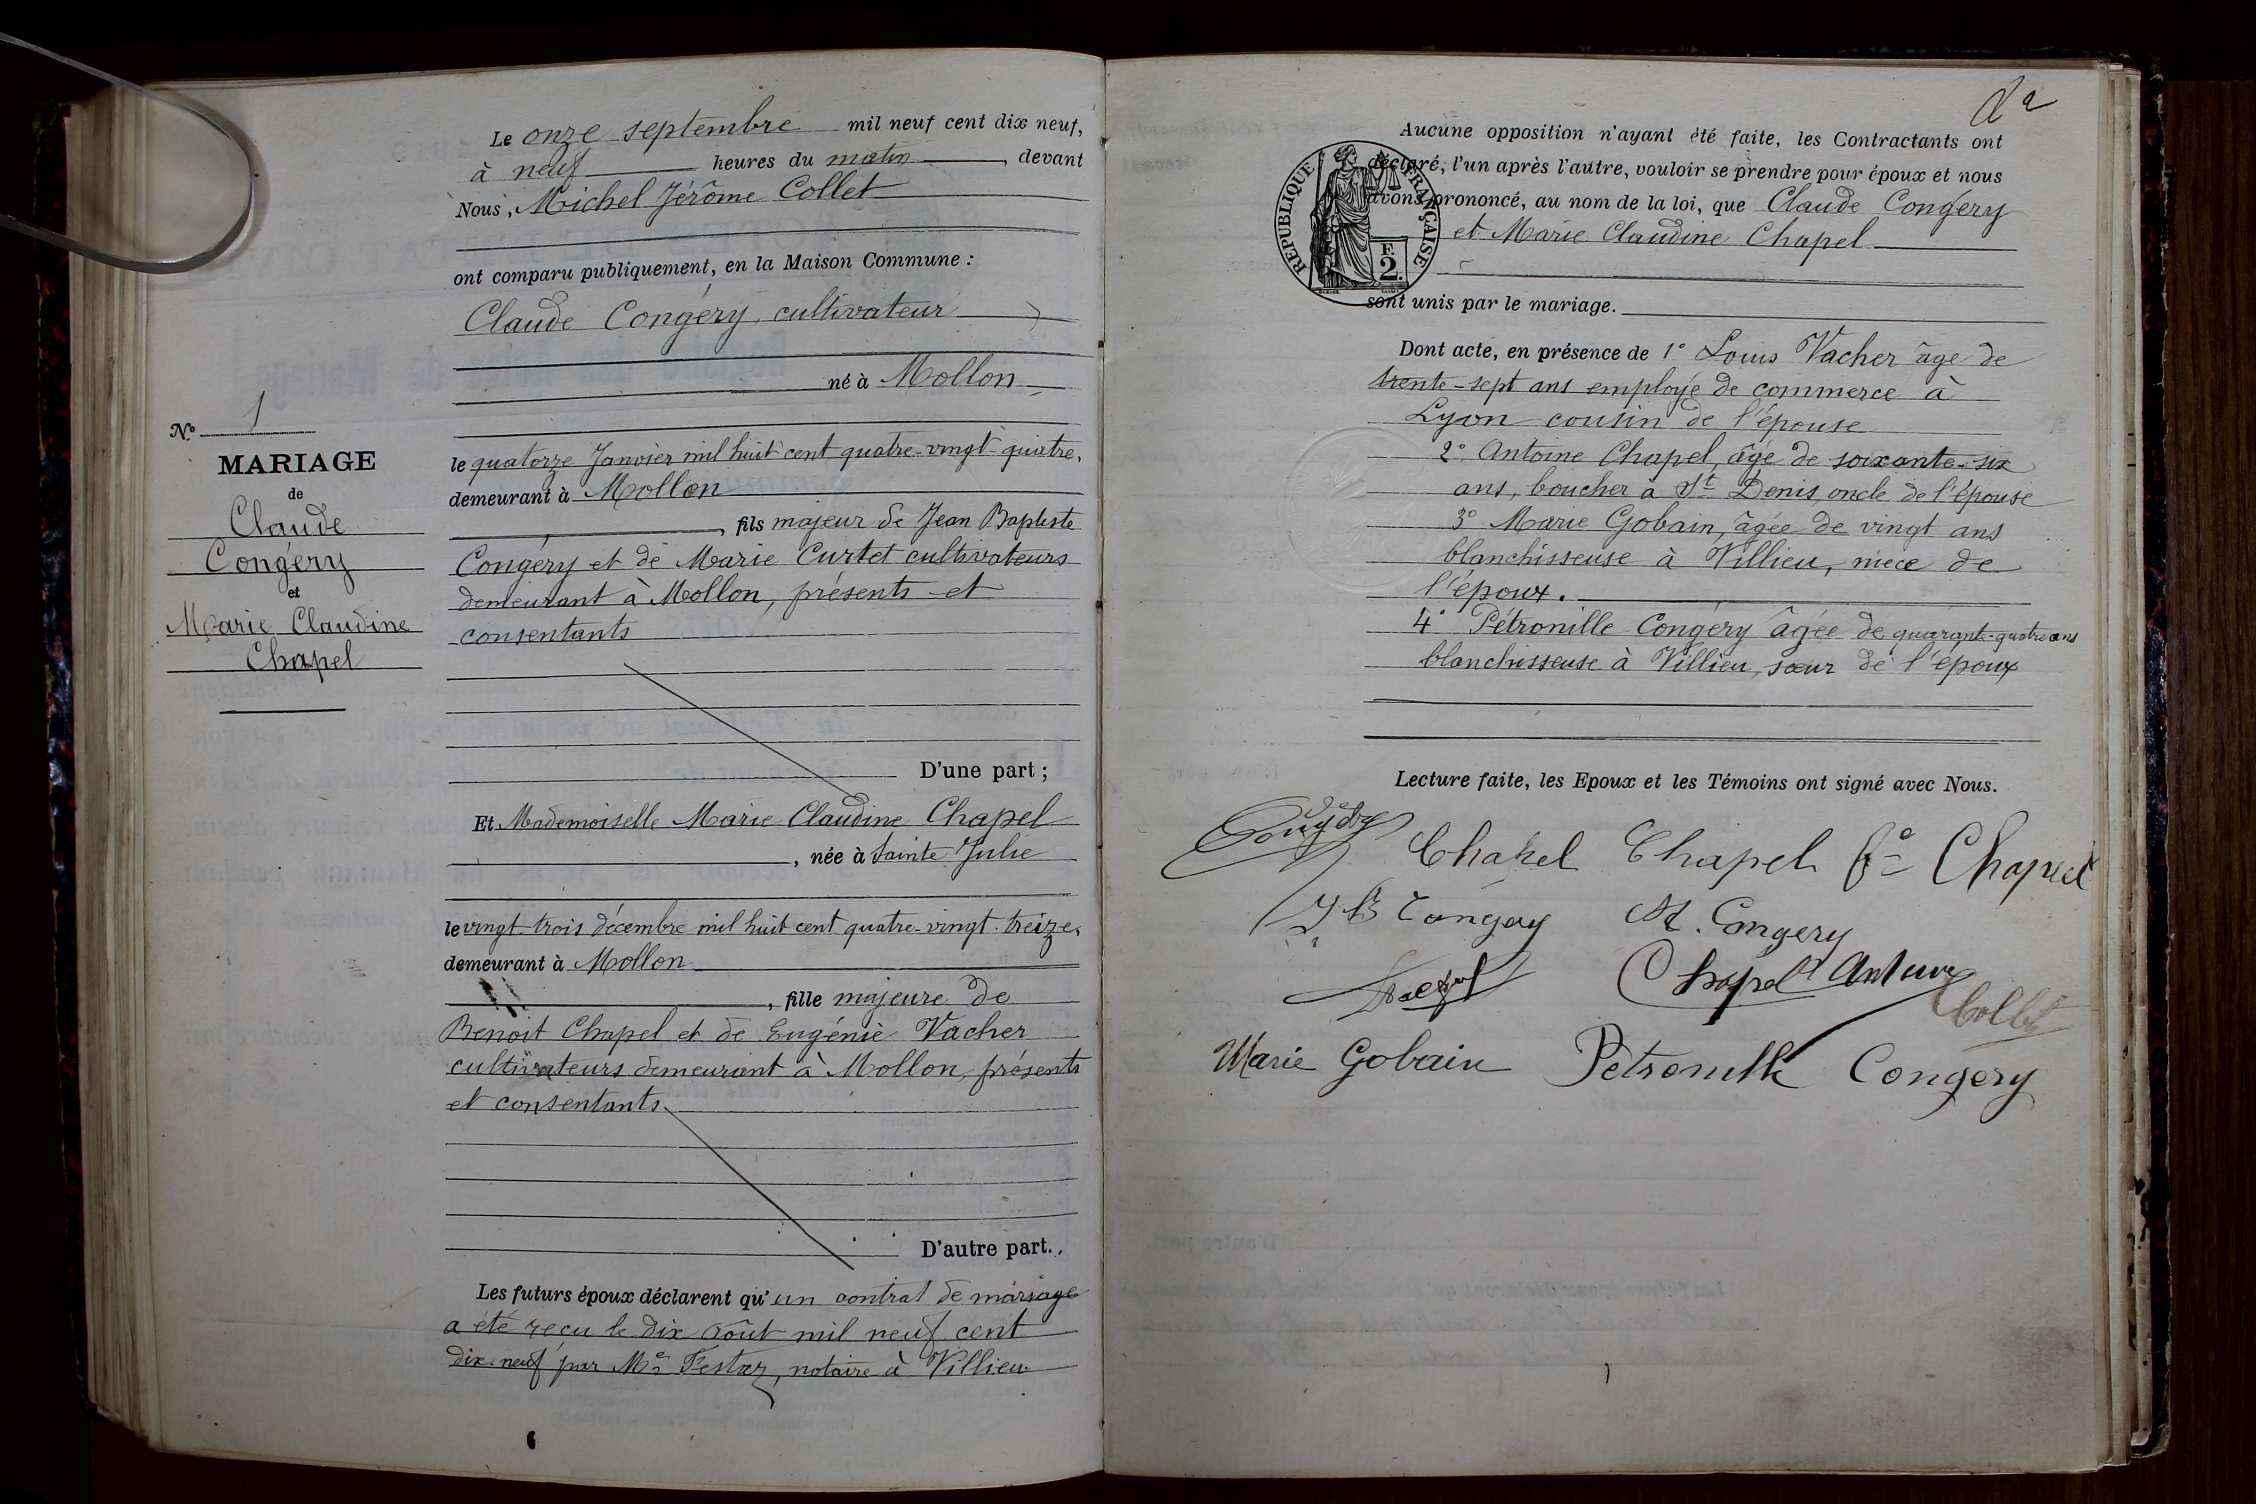 Le onze septembre mil neuf cent dix neuf,
à neuf heures du matin, devant
Nous, Michel Jérôme Collet
ont comparu publiquement, en la Maison Commune :
Claude Congéry, cultivateur
né à Mollon
le quatorze Janvier mil huit cent quatre-vingt-quatre,
demeurant à Mollon
, fils majeur de Jean Baptiste
Congéry et de Marie Curtet cultivateurs
demeurant à Mollon, présents et
consentants
D'une part ;
N° 1
MARIAGE
de
Claude
Congéry
et
Marie Claudine
Chapel
Et Mademoiselle Marie Claudine Chapel
, née à Sainte Julie
le vingt-trois décembre mil huit cent quatre-vingt-treize,
demeurant à Mollon
, fille majeure de
Benoit Chapel et de Eugénie Vacher
cultivateurs demeurant à Mollon, présents
et consentants
D'autre part.
Les futurs époux déclarent qu'un contrat de mariage
a été reçu le dix août mil neuf cent
dix-neuf par Me Festaz, notaire à Villieu
Aucune opposition n'ayant été faite, les Contractants ont
déclaré, l'un après l'autre, vouloir se prendre pour époux et nous
avons prononcé, au nom de la loi, que Claude Congéry
et Marie Claudine Chapel
sont unis par le mariage.
RÉPUBLIQUE FRANÇAISE
F.
2.
Dont acte, en présence de 1° Louis Vacher âgé de
trente-sept ans employé de commerce à
Lyon cousin de l'épouse
2° Antoine Chapel, âgé de soixante-six
ans, boucher à St Denis, oncle de l'épouse
3° Marie Gobain, âgée de vingt ans
blanchisseuse à Villieu, niece de
l'époux.
4° Pétronille Congéry âgée de quarante-quatre ans
blanchisseuse à Villieu, sœur de l'époux
Lecture faite, les Epoux et les Témoins ont signé avec Nous.
Chapel Chapel Chapel
J B Congery M. Congery
Chapel Antoine
Collet
Marie Gobain Pétronille Congery